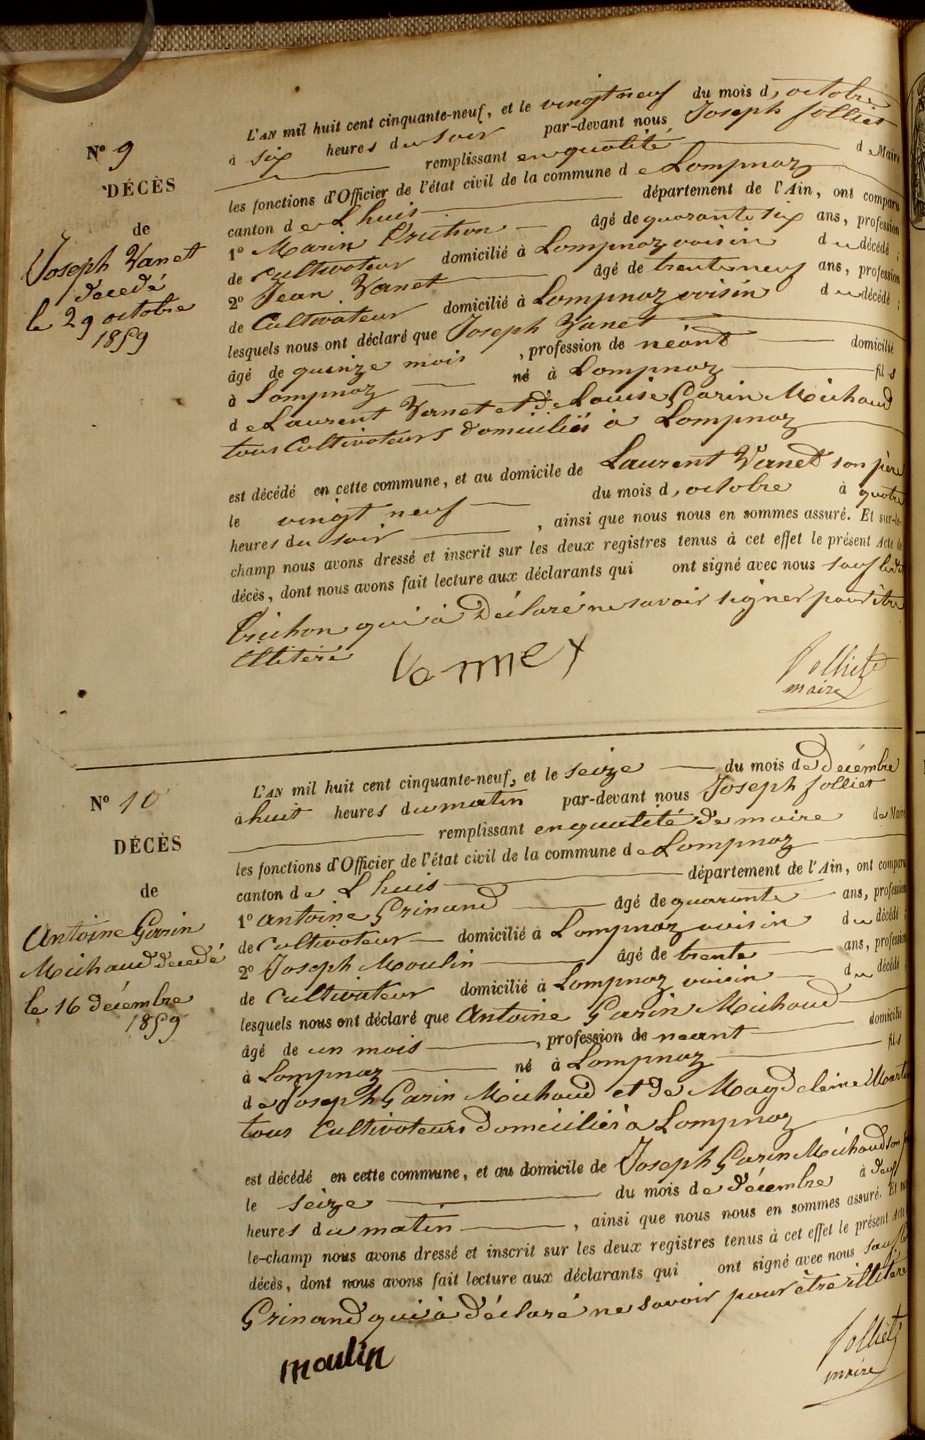 N° 9
DÉCÈS
de
Joseph Vanet
decedé
le 29 octobre
1859
L'AN mil huit cent cinquante-neuf, et le vingt neuf du mois d'octobre
à six heures du soir par-devant nous Joseph folliet
remplissant en qualité de Maire
les fonctions d'Officier de l'état civil de la commune de Lompnaz
canton de Lhuis département de l'Ain, ont comparu
1° Marin Truchon âgé de quarante six ans, profession
de Cultivateur domicilié à Lompnaz voisin du décédé ;
2° Jean Vernet âgé de trente neuf ans, profession
de Cultivateur domicilié à Lompnaz voisin du décédé ;
lesquels nous ont déclaré que Joseph Vanet
âgé de quinze mois , profession de néant domicilié
à Lompnaz né à Lompnaz fils
de Laurent Vernet et de Louise Garin Michaud
tous Cultivateurs domiciliés à Lompnaz
est décédé en cette commune, et au domicile de Laurent Vanet son père
le vingt neuf du mois d'octobre à quatre
heures du soir , ainsi que nous nous en sommes assuré. Et sur-le-
champ nous avons dressé et inscrit sur les deux registres tenus à cet effet le présent Acte de
décès, dont nous avons fait lecture aux déclarants qui ont signé avec nous sauf
Truchon qui à déclaré ne savoir signer pour être
illitéré
Vernet
folliet
maire
N° 10
DÉCÈS
de
Antoine Garin
Michaud decedé
le 16 décembre
1859
L'AN mil huit cent cinquante-neuf, et le seize du mois de décembre
à huit heures du matin par-devant nous Joseph folliet
remplissant en qualité de maire de Maire
les fonctions d'Officier de l'état civil de la commune de Lompnaz
canton de Lhuis département de l'Ain, ont comparu
1° Antoine Grinand âgé de quarante ans, profession
de Cultivateur domicilié à Lompnaz voisin du décédé ;
2° Joseph Moulin âgé de trente ans, profession
de Cultivateur domicilié à Lompnaz voisin du décédé
lesquels nous ont déclaré que Antoine Garin Michaud
âgé de un mois , profession de neant domicilié
à Lompnaz né à Lompnaz fils
de Joseph Garin Michaud et de Magdeleine
tous Cultivateurs domiciliés à Lompnaz
est décédé en cette commune, et au domicile de Joseph Garin Michaud son
le seize du mois de décembre à deux
heures du matin , ainsi que nous nous en sommes assuré. Et sur-
le-champ nous avons dressé et inscrit sur les deux registres tenus à cet effet le présent Acte
décès, dont nous avons fait lecture aux déclarants qui ont signé avec nous sauf
Grinand qui à déclaré ne savoir pour être illitéré
moulin
folliet
maire